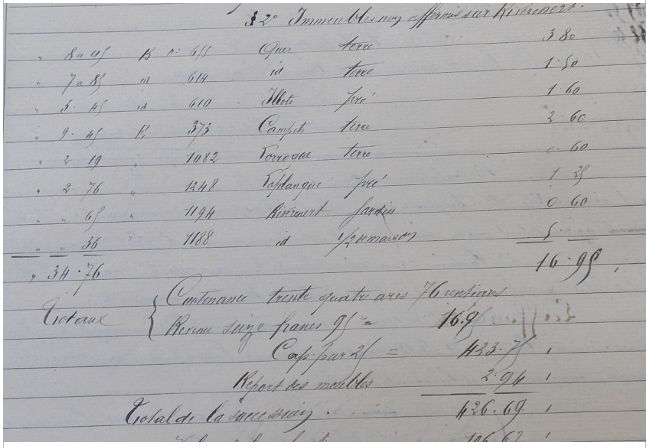 § 2° Immeubles non affermés sur Rivèrenert.
" 8 a 05 B n° 655 Quer terre 3 80
" 7 a 85 id 614 id terre 1.50
" 3. 45 id 610 pré 1.60
" 9. 45 B 373 Campets terre 2 60
" 2 19 " 1082 terre 0 60
" 2 76 " 1248 Laplangue pré 1 25
" " 65 " 1194 jardin 0 60
" " 36 " 1188 id 1/2 maison 5
" 34.76 16.95
Totaux { Contenance trente quatre ares 76 centiares
Revenu seize francs 95 = 16.95
Cap. par 25 = 423.75
Report des meubles 2.94
Total de la succession. 426.69